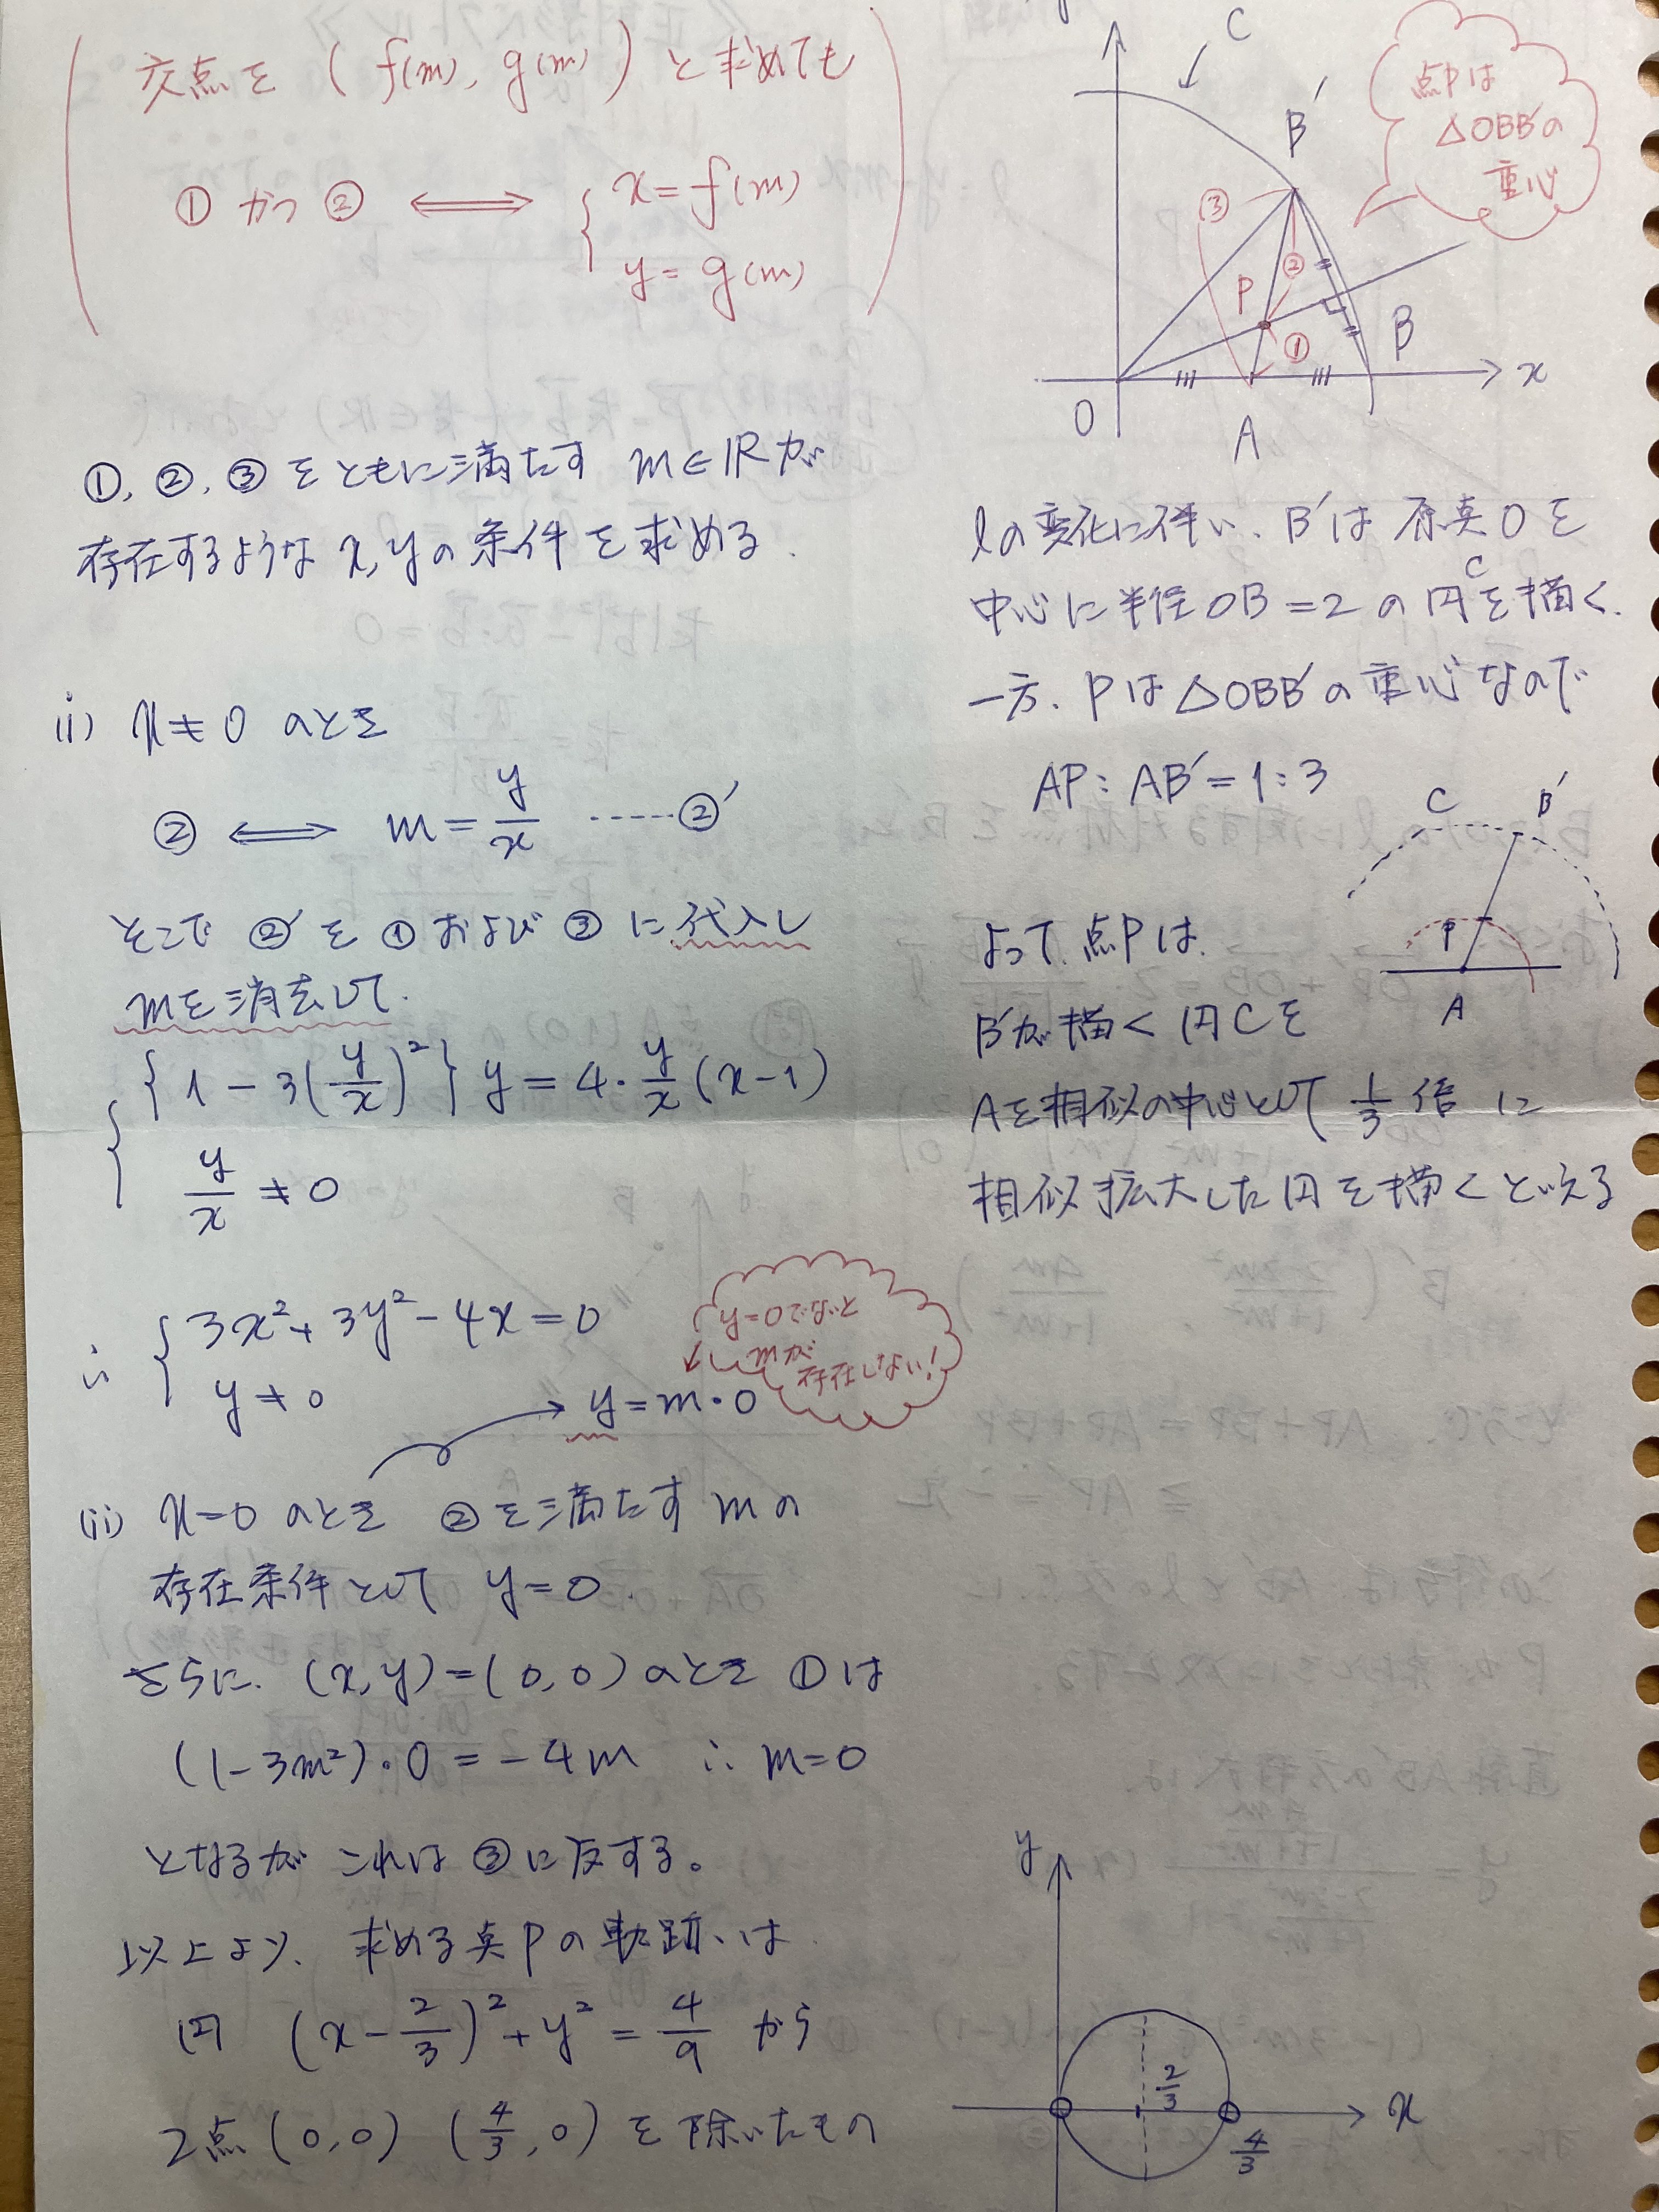 交点を (f(m), g(m)) と求めても
① かつ ② ⟺ { x = f(m)
y = g(m)
①, ②, ③ をともに満たす m∈ℝが
存在するような x, y の条件を求める.
(i) x≠0 のとき
② ⟺ m = y/x ……②′
そこで ②′ を ① および ③ に代入し
mを消去して.
{ {1 - 3(y/x)²} y = 4・y/x (x-1)
y/x ≠ 0
∴ { 3x² + 3y² - 4x = 0
y ≠ 0
y = m・0
y=0でないと
mが
存在しない!
(ii) x=0 のとき ② を満たす m の
存在条件として y=0.
さらに. (x, y) = (0, 0) のとき ① は
(1-3m²)・0 = -4m ∴ m=0
となるが これは ③ に反する。
以上より、求める点Pの軌跡は
円 (x - 2/3)² + y² = 4/9 から
2点 (0, 0) (4/3, 0) を除いたもの
C
B′
③
②
P
①
B
O
A
x
点Pは
△OBB′の
重心
lの変化に伴い、B′は原点Oを
中心に半径OB=2の円Cを描く.
一方. Pは△OBB′の重心なので
AP : AB′ = 1 : 3
C
B′
P
A
よって. 点Pは.
B′が描く円Cを
Aを相似の中心として 1/3 倍に
相似拡大した円を描くといえる
y
2/3
x
4/3